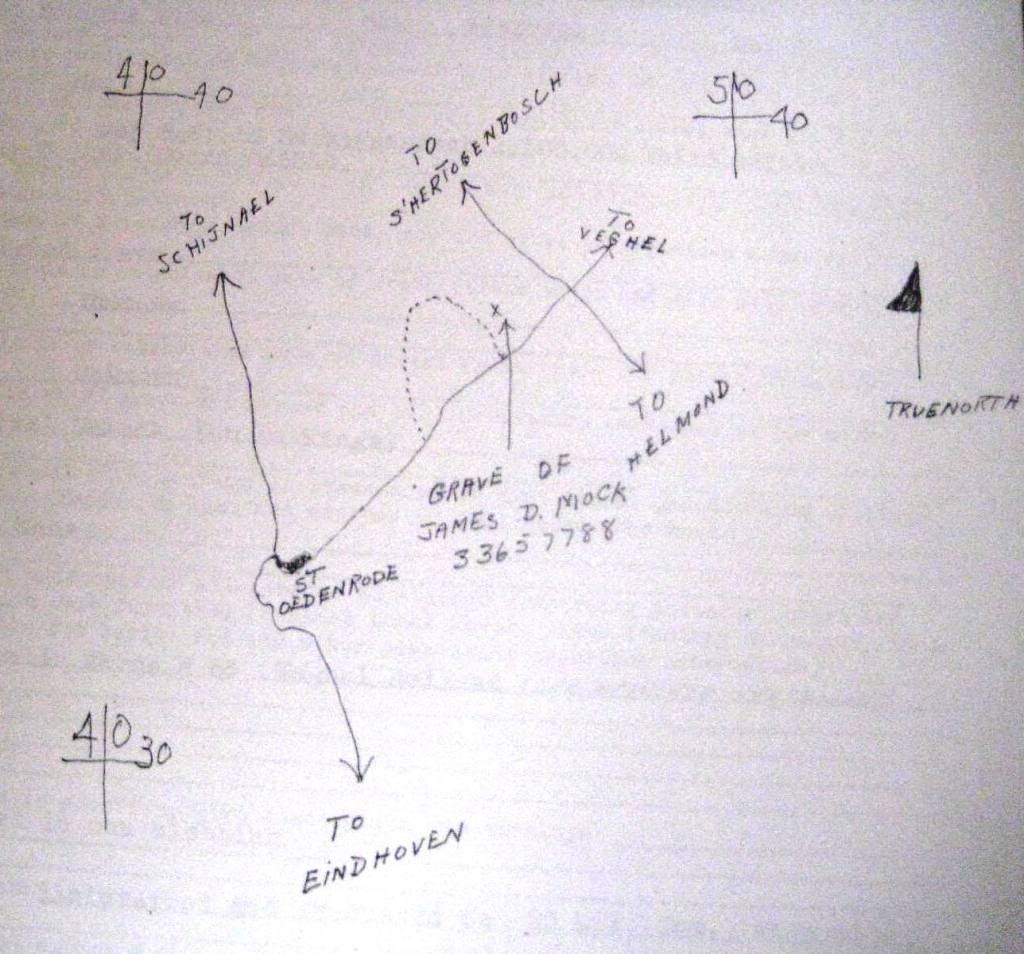 40
40
50
40
TO
S'HERTOGENBOSCH
TO
SCHIJNAEL
TO
VEGHEL
X
TRUENORTH
TO
HELMOND
GRAVE OF
JAMES D. MOCK
33657788
ST
OEDENRODE
40
30
TO
EINDHOVEN